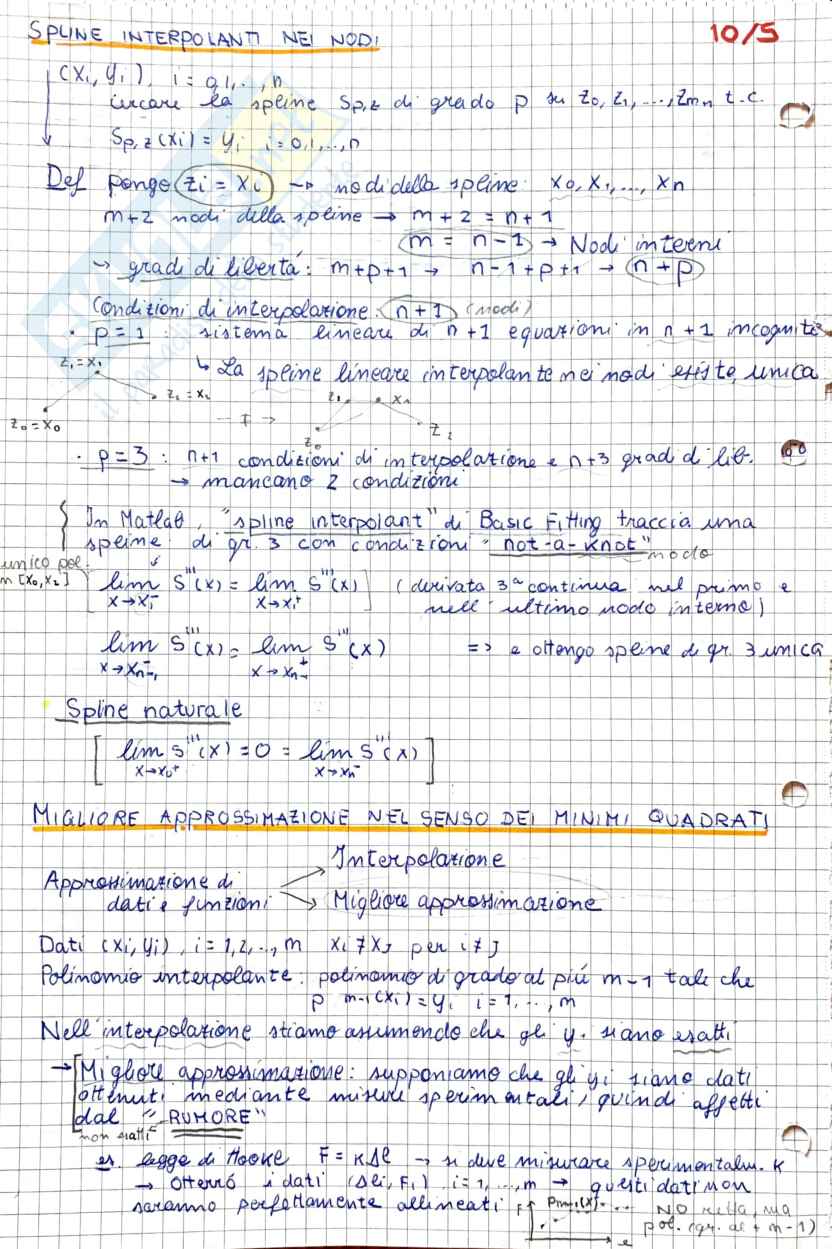 SPLINE INTERPOLANTI NEI NODI
10/5
(xi, yi), i = 0,1,..,n
cercare la spline Sp,z di grado p su z0, z1, ..., zm+1 t.c.
Sp,z(xi) = yi i=0,1,..,n
Def pongo zi = xi → nodi della spline: x0, x1, ..., xn
m+2 nodi della spline → m+2 = n+1
m = n-1 → Nodi interni
→ gradi di libertá: m+p+1 → n-1+p+1 → n+p
Condizioni di interpolazione: n+1 (nodi)
• p=1 : sistema lineare di n+1 equazioni in n+1 incognite
z1=x1
↳ La spline lineare interpolante nei nodi esiste unica
z2 = x2
z0=x0
z1 x1
z0
z2
• p=3 : n+1 condizioni di interpolazione e n+3 grad d lib.
→ mancano 2 condizioni
In Matlab, "spline interpolant" di Basic Fitting traccia una
spline di gr. 3 con condizioni "not-a-knot"
nodo
unico pol.
in [x0,x2]
lim x→x1⁻ S'''(x) = lim x→x1⁺ S'''(x) (derivata 3ª continua nel primo e
nell' ultimo nodo interno)
lim x→xn-1⁻ S'''(x) = lim x→xn-1⁺ S'''(x) => e ottengo spline di gr. 3 unica
Spline naturale
[ lim x→x0⁺ S'''(x) = 0 = lim x→xn⁻ S'''(x) ]
MIGLIORE APPROSSIMAZIONE NEL SENSO DEI MINIMI QUADRATI
Interpolazione
Approssimazione di
dati e funzioni
Migliore approssimazione
Dati (xi, yi), i = 1,2,..,m xi ≠ xj per i ≠ j
Polinomio interpolante: polinomio di grado al piú m-1 tale che
p m-1(xi) = yi i=1,..,m
Nell'interpolazione stiamo assumendo che gli yi siano esatti
→ Migliore approssimazione: supponiamo che gli yi siano dati
ottenuti mediante misure sperimentali, quindi affetti
dal "RUMORE"
non esatti
es. legge di Hooke F = KΔl → si deve misurare sperimentalm. K
→ Otterró i dati (Δli, Fi) i=1,..,m → questi dati non
saranno perfettamente allineati
F
Pm-1(x)
NO retta, ma
pol. (gr. al + m-1)
e